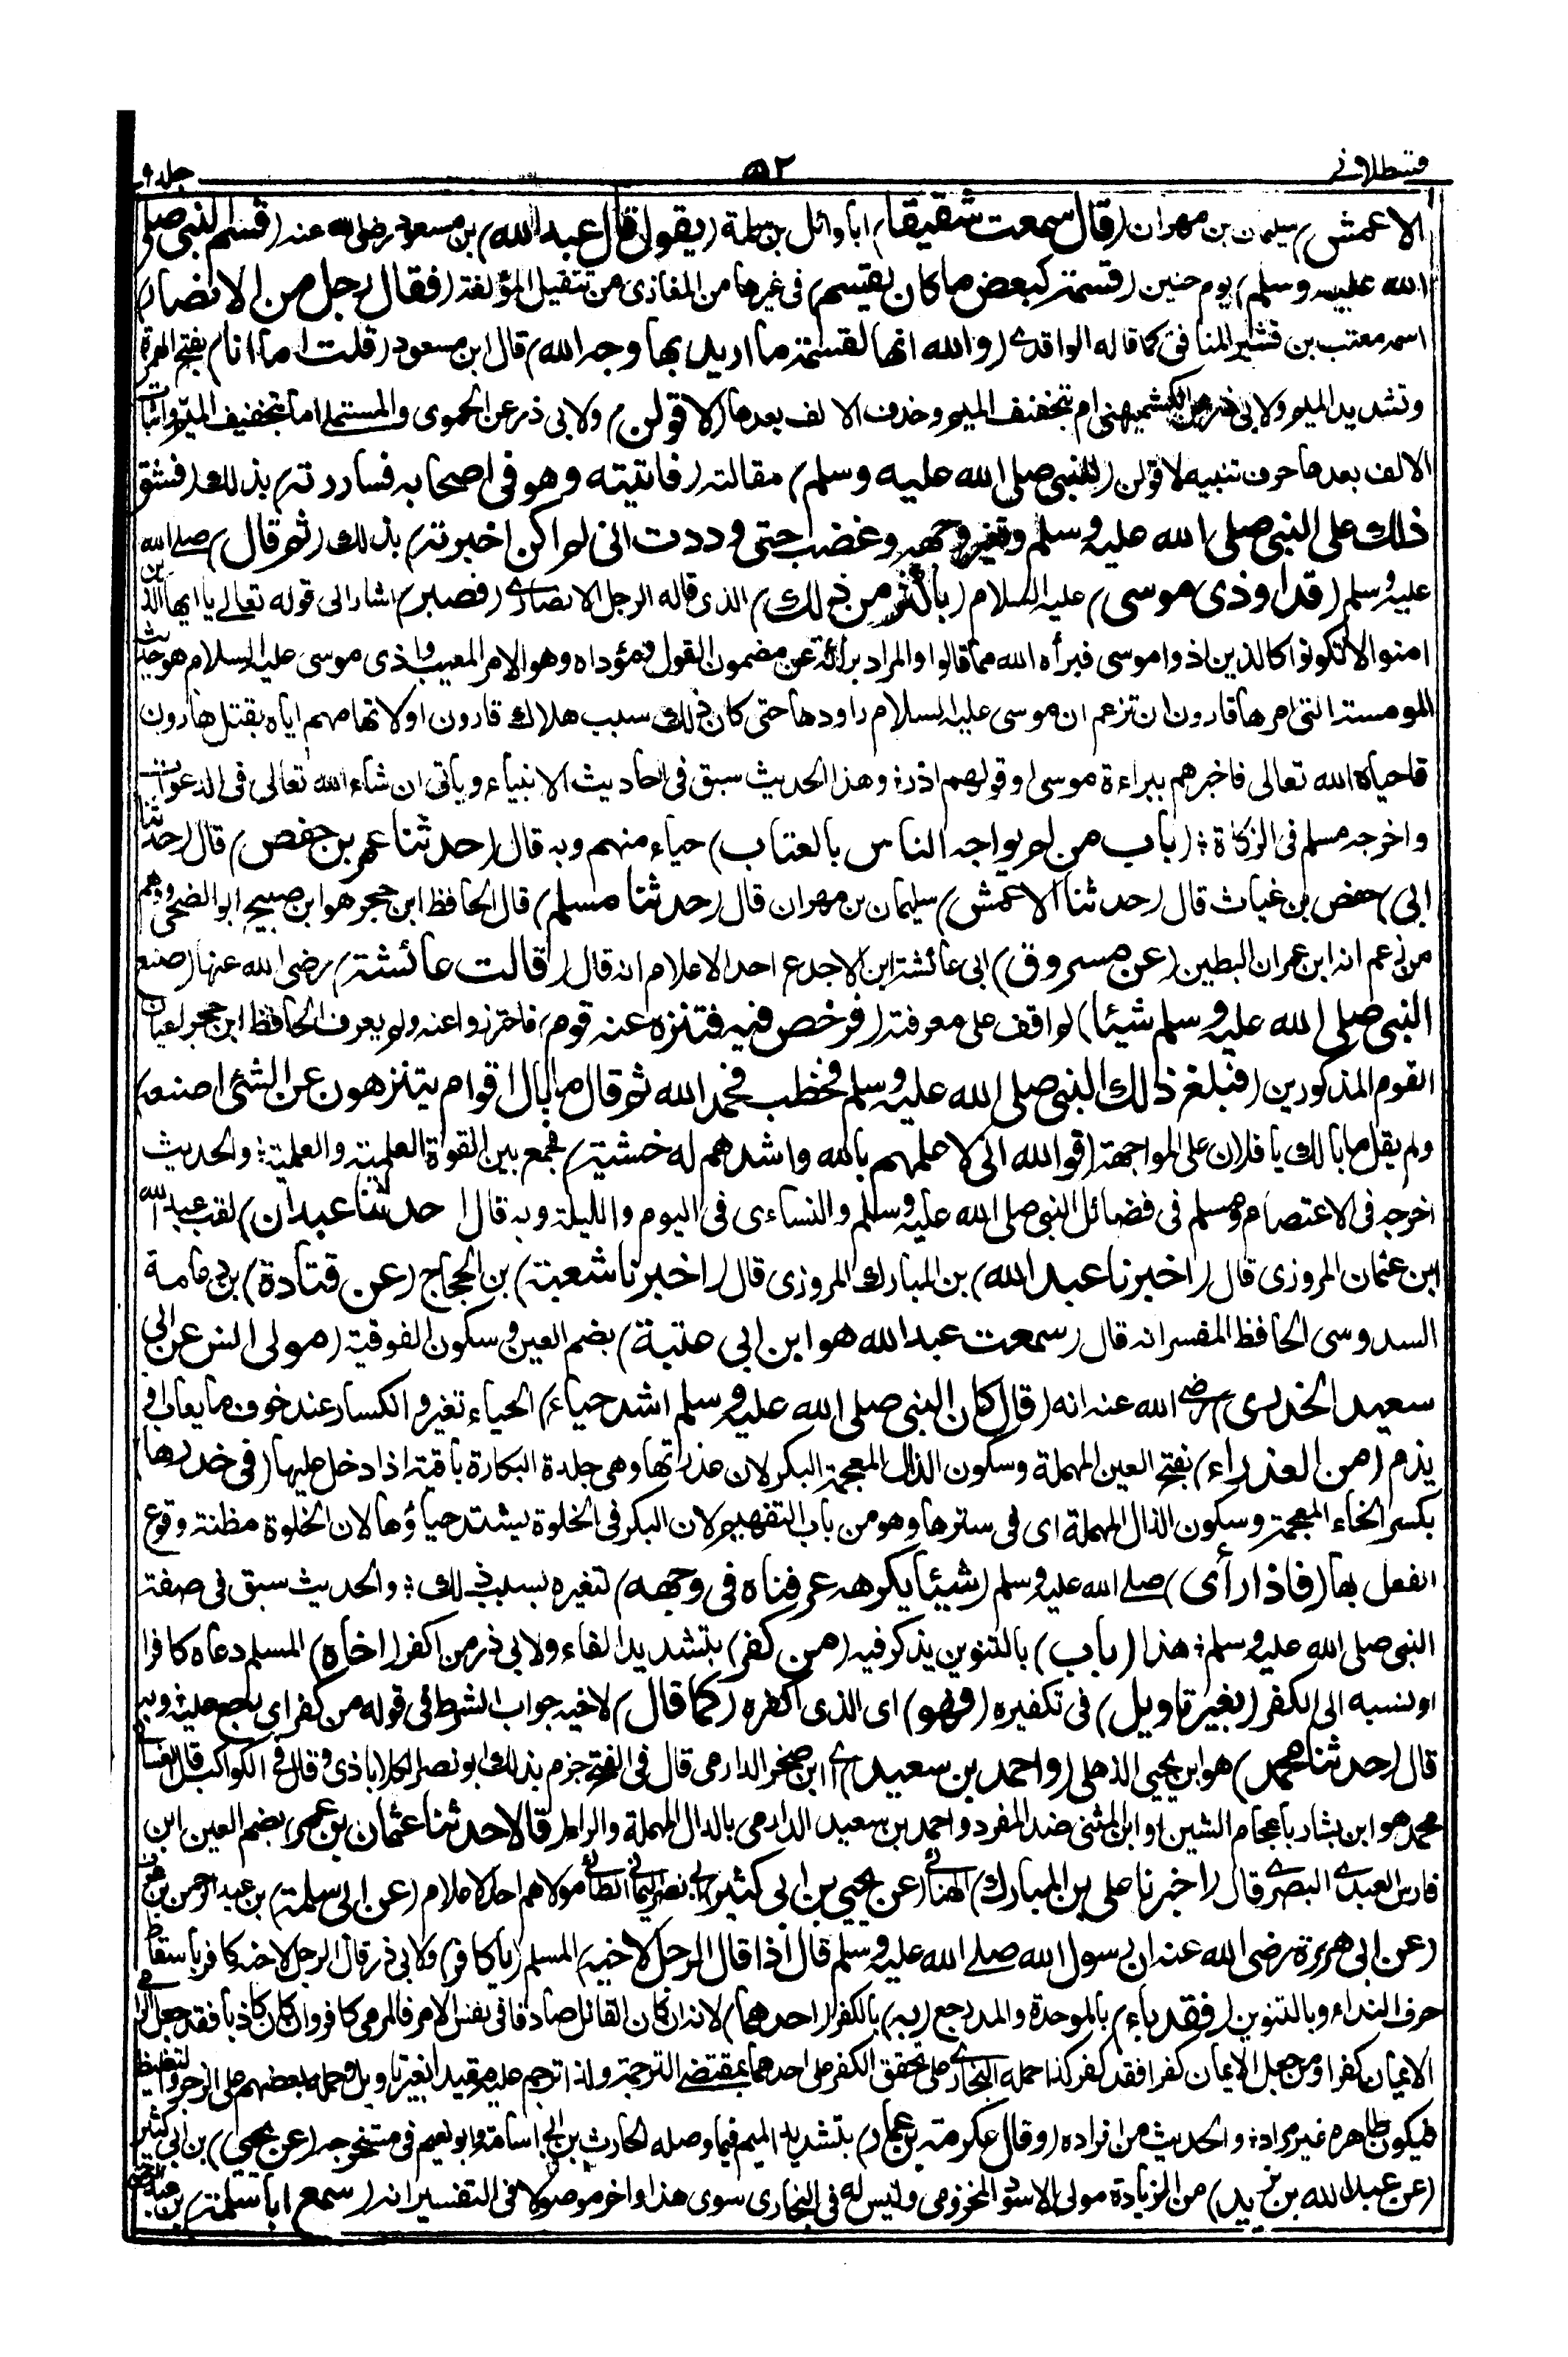 قسطلانى ٥٢ جلد ٩
الاعمش) سليمان بن مهران (قال سمعت شقيقا) ابا وائل بن سلمة (يقول قال عبد الله) بن مسعود رضى الله عنه (قسم النبى صلى
الله عليه وسلم) يوم حنين (قسمة كبعض ما كان يقسم) فى غيرها من المغازى من تنفيل المؤلفة (فقال رجل من الانصار)
اسمه معتب بن قشير المنافق كما قاله الواقدى (والله انها لقسمة ما اريد بها وجه الله) قال ابن مسعود (قلت اما انا) بفتح الهمزة
وتشديد الميم ولابى ذر عن الكشميهنى ام بتخفيف الميم وحذف الالف بعدها (لاقولن) ولابى ذر عن الحموى والمستملى اما بتخفيف الميم واثبات
الالف بعدها حرف تنبيه لاقولن (للنبى صلى الله عليه وسلم) مقالته (فاتيته وهو فى اصحابه فساررته) بذلك (فشق
ذلك على النبى صلى الله عليه وسلم وتغير وجهه وغضب حتى وددت انى لم اكن اخبرته) بذلك (ثم قال) صلى الله
عليه وسلم (قد اوذى موسى) عليه السلام (باكثر من ذلك) الذى قاله الرجل الانصارى (فصبر) اشار الى قوله تعالى يا ايها الذين
امنوا لا تكونوا كالذين اذوا موسى فبرأه الله مما قالوا والمراد برائة عن مضمون القول ومؤداه وهو الامر المعيب واذى موسى عليه السلام هو حديث
المومسة التى امرها قارون ان تزعم ان موسى عليه السلام راودها حتى كان ذلك سبب هلاك قارون او لاتهامهم اياه بقتل هارون
فاحياه الله تعالى فاخبرهم ببراءة موسى او قولهم اذر؛ وهذا الحديث سبق فى احاديث الانبياء وياتى ان شاء الله تعالى فى الدعوات
واخرجه مسلم فى الزكاة؛ (باب من لم يواجه الناس بالعتاب) حياء منهم وبه قال (حدثنا عمر بن حفص) قال (حدثنا
ابى) حفص بن غياث قال (حدثنا الاعمش) سليمان بن مهران قال (حدثنا مسلم) قال الحافظ ابن حجر هو ابن صبيح ابو الضحى ووهم
من زعم انه ابن عمران البطين (عن مسروق) ابى عائشة ابن الاجدع احد الاعلام انه قال (قالت عائشة) رضى الله عنها (صنع
النبى صلى الله عليه وسلم شيئا) لم اقف على معرفته (فرخص فيه فتنزه عنه قوم) فاحترزوا عنه ولم يعرف الحافظ ابن حجر اعيان
القوم المذكورين (فبلغ ذلك النبى صلى الله عليه وسلم فخطب فحمد الله ثم قال ما بال اقوام يتنزهون عن الشئ اصنعه)
ولم يقل ما بالك يا فلان على المواجهة (فوالله انى لاعلمهم بالله واشدهم له خشية) فجمع بين القوة العلمية والعملية؛ والحديث
اخرجه فى الاعتصام ومسلم فى فضائل النبى صلى الله عليه وسلم والنساءى فى اليوم والليلة وبه قال (حدثنا عبدان) لقب عبد الله
ابن عثمان المروزى قال (اخبرنا عبد الله) بن المبارك المروزى قال (اخبرنا شعبة) بن الحجاج (عن قتادة) بن دعامة
السدوسى الحافظ المفسر انه قال (سمعت عبد الله هو ابن ابى عتبة) بضم العين وسكون الفوقية (مولى انس عن ابى
سعيد الخدرى) رضى الله عنه انه (قال كان النبى صلى الله عليه وسلم اشد حياء) الحياء تغير وانكسار عند خوف ما يعاب او
يذم (من العذراء) بفتح العين المهملة وسكون الذال المعجمة البكر لان عذرتها وهى جلدة البكارة باقية اذا دخل عليها (فى خدرها)
بكسر الخاء المعجمة وسكون الذال المهملة اى فى سترها وهو من باب التفهيم لان البكر فى الخلوة يشتد حياؤها لان الخلوة مظنة وقوع
الفعل بها (فاذا رأى) صلى الله عليه وسلم (شيئا يكرهه عرفناه فى وجهه) لتغيره بسبب ذلك؛ والحديث سبق فى صفة
النبى صلى الله عليه وسلم؛ هذا (باب) بالتنوين يذكر فيه (من كفر) بتشديد الفاء ولابى ذر من اكفر (اخاه) المسلم دعاه كافرا
او نسبه الى الكفر (بغير تاويل) فى تكفيره (فهو) اى الذى اكفره (كما قال) لاخيه جواب الشرط فى قوله من كفر اى راجع عليه؛ وبه
قال (حدثنا محمد) هو ابن يحيى الذهلى (واحمد بن سعيد) اى ابن صخر الدارمى قال فى الفتح جزم بذلك ابو نصر الكلاباذى وقال فى الكواكب قال الغسانى
محمد هو ابن بشار باعجام الشين او ابن المثنى ضد المفرد واحمد بن سعيد الدارمى بالدال المهملة والراء (قالا حدثنا عثمان بن عمر) بضم العين ابن
فارس العبدى البصرى قال (اخبرنا على بن المبارك) الهنائى (عن يحيى بن ابى كثير) ابى نصر اليمانى الطائى مولاهم احد الاعلام (عن ابى سلمة) بن عبد الرحمن بن عوف
(عن ابى هريرة رضى الله عنه ان رسول الله صلى الله عليه وسلم قال اذا قال الرجل لاخيه) المسلم (يا كافر) ولابى ذر قال الرجل لاخيه كافر باسقاط
حرف النداء وبالتنوين (فقد باء) بالموحدة والمد رجع (به) بالكفر (احدهما) لانه ان كان القائل صادقا فى نفس الامر فالمرمى كافر وان كان كاذبا فقد جعل الرامى
الايمان كفرا ومن جعل الايمان كفرا فقد كفر كذا حمله البخارى على تحقق الكفر على احدهما بمقتضى الترجمة ولذا ترجم عليه مقيدا بغير تاويل وحمله بعضهم على الزجر والتغليظ
فيكون ظاهره غير مراد؛ والحديث من افراده (وقال عكرمة بن عمار) بتشديد الميم فيما وصله الحارث بن ابى اسامة وابو نعيم فى مستخرجه (عن يحيى) بن ابى كثير
(عن عبد الله بن يزيد) من الزيادة مولى الاسود المخزومى وليس له فى البخارى سوى هذا واخر موصولا فى التفسير انه (سمع ابا سلمة) بن عبد الرحمن